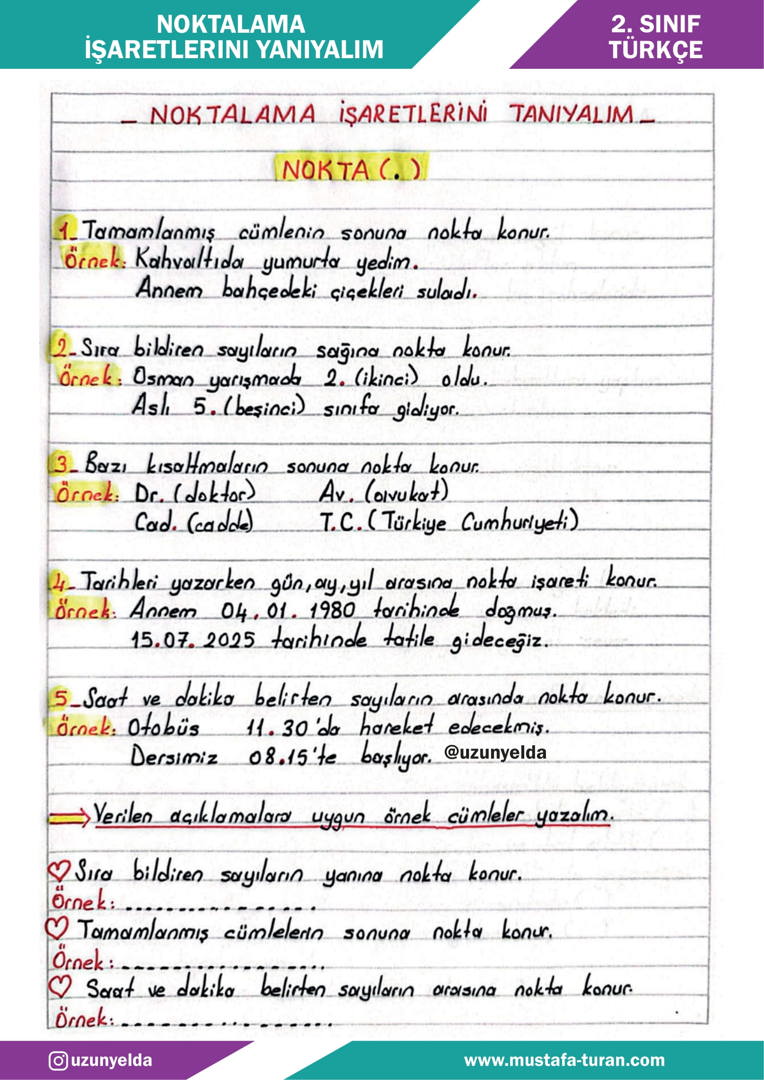 NOKTALAMA
İŞARETLERINI YANIYALIM
2. SINIF
TÜRKÇE
_ NOKTALAMA İŞARETLERİNİ TANIYALIM _
NOKTA (.)
1_ Tamamlanmış cümlenin sonuna nokta konur.
Örnek: Kahvaltıda yumurta yedim.
Annem bahçedeki çiçekleri suladı.
2_ Sıra bildiren sayıların sağına nokta konur.
Örnek: Osman yarışmada 2. (ikinci) oldu.
Aslı 5. (beşinci) sınıfa gidiyor.
3_ Bazı kısaltmaların sonuna nokta konur.
Örnek: Dr. (doktor) Av. (avukat)
Cad. (cadde) T.C. (Türkiye Cumhuriyeti)
4_ Tarihleri yazarken gün, ay, yıl arasına nokta işareti konur.
Örnek: Annem 04.01.1980 tarihinde doğmuş.
15.07.2025 tarihinde tatile gideceğiz.
5_ Saat ve dakika belirten sayıların arasında nokta konur.
Örnek: Otobüs 11.30'da hareket edecekmiş.
Dersimiz 08.15'te başlıyor. @uzunyelda
Verilen açıklamalara uygun örnek cümleler yazalım.
Sıra bildiren sayıların yanına nokta konur.
Örnek: ................
Tamamlanmış cümlelerin sonuna nokta konur.
Örnek: .................
Saat ve dakika belirten sayıların arasına nokta konur.
Örnek: .................
uzunyelda
www.mustafa-turan.com